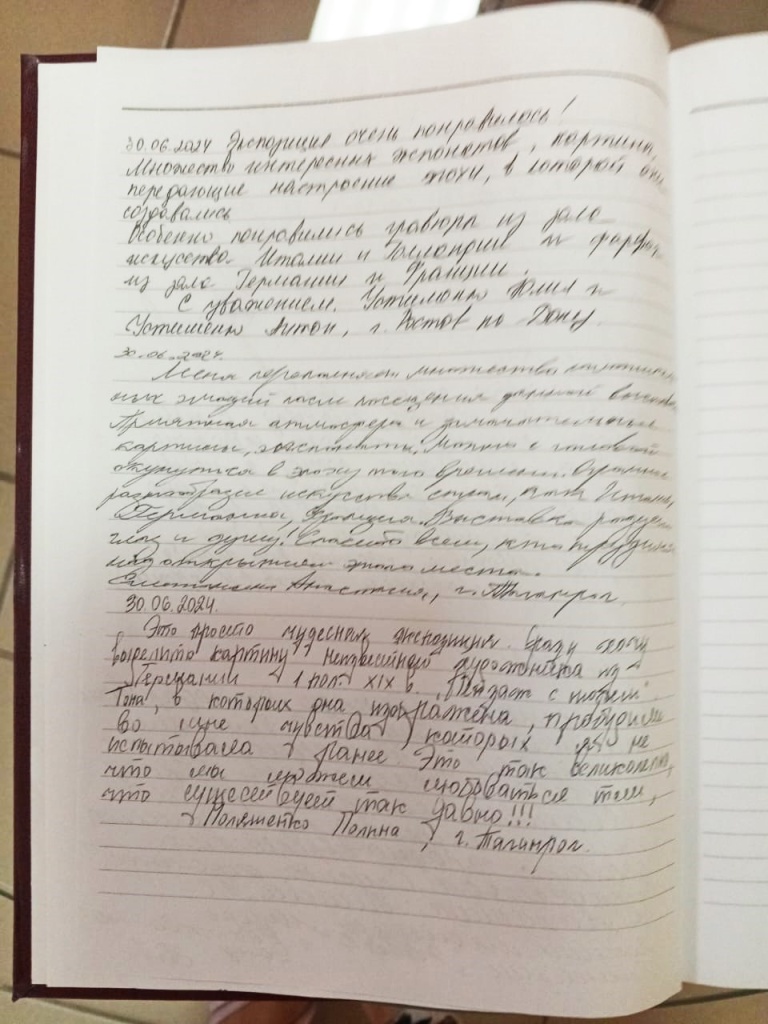 30.06.2024 Экспозиция очень понравилась!
Множество интересных экспонатов, картины,
передающие настроение эпохи, в которой они
создавались
Особенно понравились гравюры из зала
искусства Италии и Голландии и фарфор
из зала Германии и Франции.
С уважением, Устименко Юлия и
Устименко Антон, г. Ростов на Дону
30.06.2024.
Меня переполняет множество
эмоций после посещения данной выставки.
Приятная атмосфера и
картины, экспонаты. Можно с головой
окунуться в эпоху того времени. Огромное
разнообразие искусства стран,
Германия, Франция. Выставка радует
глаз и душу! Спасибо всем, кто трудился
над открытием этого места.
Анастасия, г. Таганрог.
30.06.2024.
Это просто чудесная экспозиция. Сразу хочу
выделить картину неизвестного художника из
Германии 1 пол. XIX в. "Пейзаж с
Тона, в которых она изображена, пробудили
во мне чувства, которых я не
испытывала ранее Это так великолепно,
что мы можем любоваться тем,
что существует так давно!!!
Поляшенко Полина, г. Таганрог.